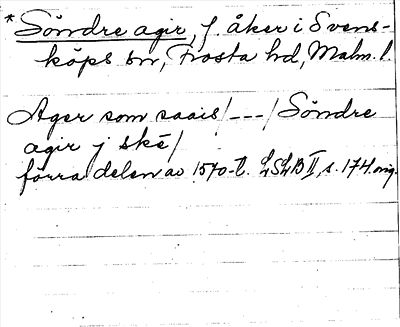 *Söndre agir, f. åker i Svens-
köps sn, Frosta hd, Malm. l.
Ager som saais /---/ Söndre
agir j ské /
förra delen av 1570-t. LSLB II, s. 174. orig.